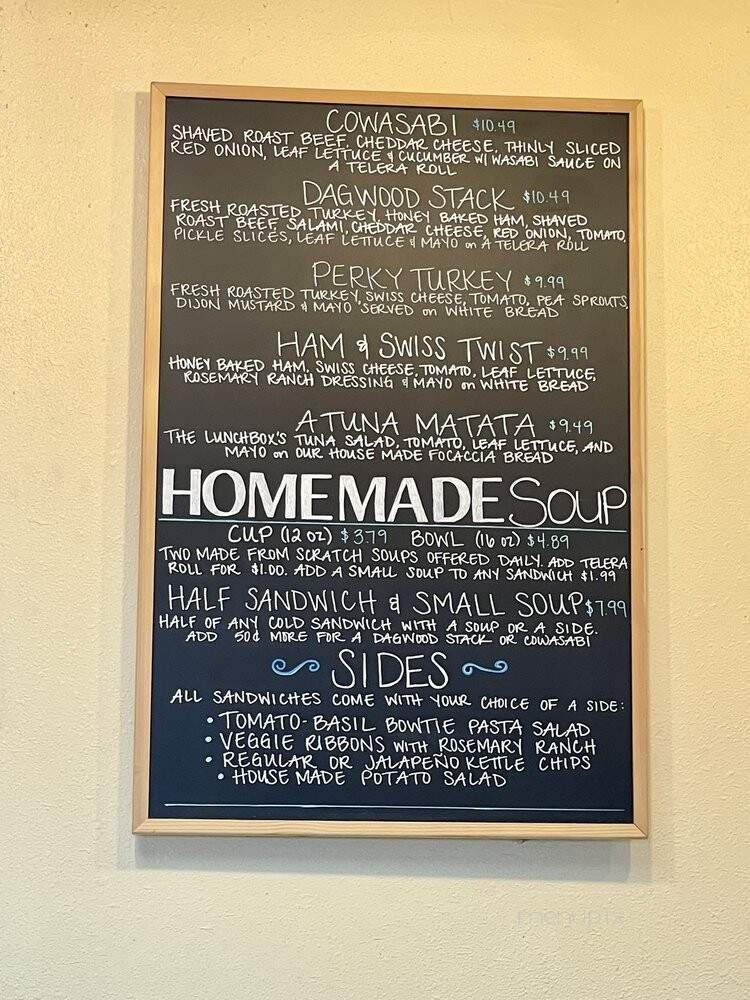 COWASABI $10.49
SHAVED ROAST BEEF, CHEDDAR CHEESE, THINLY SLICED
RED ONION, LEAF LETTUCE & CUCUMBER W/ WASABI SAUCE ON
A TELERA ROLL
DAGWOOD STACK $10.49
FRESH ROASTED TURKEY, HONEY BAKED HAM, SHAVED
ROAST BEEF, SALAMI, CHEDDAR CHEESE, RED ONION, TOMATO,
PICKLE SLICES, LEAF LETTUCE & MAYO on A TELERA ROLL
PERKY TURKEY $9.99
FRESH ROASTED TURKEY, SWISS CHEESE, TOMATO, PEA SPROUTS,
DIJON MUSTARD & MAYO SERVED on WHITE BREAD
HAM & SWISS TWIST $9.99
HONEY BAKED HAM, SWISS CHEESE, TOMATO, LEAF LETTUCE,
ROSEMARY RANCH DRESSING & MAYO on WHITE BREAD
A TUNA MATATA $9.49
THE LUNCHBOX'S TUNA SALAD, TOMATO, LEAF LETTUCE, AND
MAYO on OUR HOUSE MADE FOCACCIA BREAD
HOMEMADE SOUP
CUP (12 OZ) $3.79 BOWL (16 OZ) $4.89
TWO MADE FROM SCRATCH SOUPS OFFERED DAILY. ADD TELERA
ROLL FOR $1.00. ADD A SMALL SOUP TO ANY SANDWICH $1.99
HALF SANDWICH & SMALL SOUP $7.99
HALF OF ANY COLD SANDWICH WITH A SOUP OR A SIDE.
ADD 50¢ MORE FOR A DAGWOOD STACK OR COWASABI
SIDES
ALL SANDWICHES COME WITH YOUR CHOICE OF A SIDE:
• TOMATO-BASIL BOWTIE PASTA SALAD
• VEGGIE RIBBONS WITH ROSEMARY RANCH
• REGULAR OR JALAPEÑO KETTLE CHIPS
• HOUSE MADE POTATO SALAD